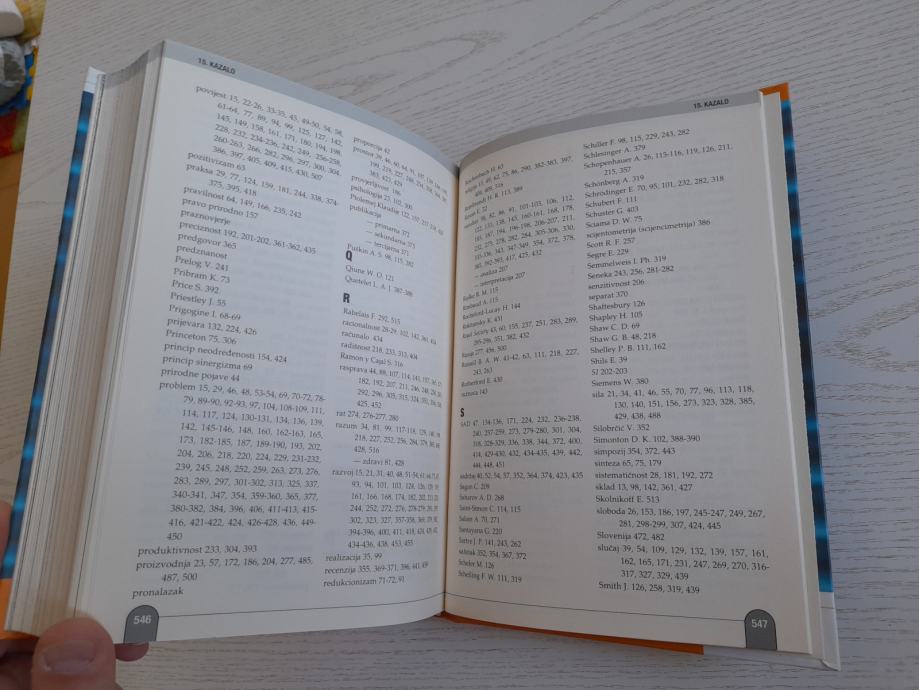 15. KAZALO
povijest 15, 22-26, 33-35, 45, 49-50, 54, 58,
61-64, 77, 89, 94, 99, 125, 127, 142,
145, 149, 158, 161, 171, 180, 194, 198,
228, 232, 234-236, 242, 249, 256-258,
260-263, 266, 282, 296, 297, 300, 304,
386, 397, 405, 409, 415, 430, 507
pozitivizam 63
praksa 29, 77, 124, 159, 181, 244, 338, 374-
375, 395, 418
pravilnost 64, 149, 166, 235, 242
pravo prirodno 157
praznovjerje
preciznost 192, 201-202, 361-362, 435
predgovor 365
predznanost
Prelog V. 241
Pribram K. 73
Price S. 392
Priestley J. 55
Prigogine I. 68-69
prijevara 132, 224, 426
Princeton 75, 306
princip neodređenosti 154, 424
princip sinergizma 69
prirodne pojave 44
problem 15, 29, 46, 48, 53-54, 69, 70-72, 78-
79, 89-90, 92-93, 97, 104, 108-109, 111,
114, 117, 124, 130-131, 134, 136, 139,
142, 145-146, 148, 160, 162-163, 165,
173, 182-185, 187, 189-190, 193, 202,
204, 206, 218, 220, 224, 229, 231-232,
239, 245, 248, 252, 259, 263, 273, 276,
283, 289, 297, 301-302, 313, 325, 337,
340-341, 347, 354, 359-360, 365, 377,
380-382, 384, 396, 406, 411-413, 415-
416, 421-422, 424, 426-428, 436, 449-
450
produktivnost 233, 304, 393
proizvodnja 23, 57, 172, 186, 204, 277, 485,
487, 500
pronalazak
proporcija 42
prostor 39, 46, 60, 64, 91, 107,
383, 423, 429
provjerljivost 186
psihologija 23, 102, 300
Ptolemej Klaudije 122, 157,
publikacija
— primarna 372
— sekundarna 373
— tercijarna 371
Puškin A. S. 98, 115, 282
Q
Qiune W. O. 121
Quetelet L. A. J. 387-388
R
Rabelais F. 292, 515
racionalnost 28-29, 102, 142, 361, 424
računalo 434
radišnost 218, 233, 313, 404
Ramon y Cajal S. 316
rasprava 44, 88, 107, 114, 143,
182, 192, 207, 211, 246, 248,
292, 296, 305, 315, 324,
425, 452
rat 274, 276-277, 280
razum 34, 81, 99, 117-118, 129,
218, 227, 252, 256, 284, 379,
428, 516
— zdravi 81, 428
razvoj 15, 21, 31, 40, 48, 51-54, 61,
93, 94, 101, 103, 124, 126,
161, 166, 168, 174, 182,
244, 252, 272, 276, 278-279,
302, 323, 327, 357-358,
394-396, 400, 411, 418,
434-436, 438, 453, 455
realizacija 35, 99
recenzija 355, 369-371, 396, 441, 459
redukcionizam 71-72, 91
546
15. KAZALO
Reichenbach H. 63
religija 15, 49, 62, 75, 86, 290, 382-383, 397,
406, 408, 516
Rembrandt H. R. 113, 389
Renan E. 52
98, 82, 86, 91, 101-103, 106, 112,
122, 133, 138, 145, 160-161, 168, 178,
185, 187, 194, 196-198, 206-207, 211,
232, 275, 278, 282, 284, 305-306, 330,
335-336, 343, 347-349, 354, 372, 378,
385, 392-393, 417, 425, 432
— analiza 207
— interpretacija 207
Rilke R. M. 115
Rimbaud A. 115
Rocheford-Lucay H. 144
Rokitansky K. 431
Royal Society 43, 60, 155, 237, 251, 283, 289,
295-296, 351, 382, 432
Rusija 277, 436, 500
Russell B. A. W. 41-42, 63, 111, 218, 227,
243, 263
Rutherford E. 430
ružnoća 143
S
SAD 47, 134-136, 171, 224, 232, 236-238,
240, 257-259, 273, 279-280, 301, 304,
318, 328-329, 336, 338, 344, 372, 400,
414, 429-430, 432, 434-435, 439, 442,
444, 448, 451
sadržaj 40, 52, 54, 57, 352, 364, 374, 423, 435
Sagan C. 209
Saharov A. D. 268
Saint-Simon C. 114, 115
Salam A. 70, 271
Santayana G. 220
Sartre J. P. 141, 243, 262
sažetak 352, 354, 367, 372
Scheler M. 126
Schelling F. W. 111, 319
Schiller F. 98, 115, 229, 243, 282
Schlesinger A. 379
Schopenhauer A. 26, 115-116, 119, 126, 211,
215, 357
Schönberg A. 319
Schrödinger E. 70, 95, 101, 232, 282, 318
Schubert F. 111
Schuster G. 403
Sciama D. W. 75
scijentometrija (scijencimetrija) 386
Scott R. F. 257
Segre E. 229
Semmelweis I. Ph. 319
Seneka 243, 256, 281-282
senzitivnost 206
separat 370
Shaftesbury 126
Shapley H. 105
Shaw C. D. 69
Shaw G. B. 48, 218
Shelley P. B. 111, 162
Shils E. 39
SI 202-203
Siemens W. 380
sila 21, 34, 41, 46, 55, 70, 77, 96, 113, 118,
130, 140, 151, 156, 273, 323, 328, 385,
429, 438, 488
Silobrčić V. 352
Simonton D. K. 102, 388-390
simpozij 354, 372, 443
sinteza 65, 75, 179
sistematičnost 28, 181, 192, 272
sklad 13, 98, 142, 361, 427
Skolnikoff E. 513
sloboda 26, 153, 186, 197, 245-247, 249, 267,
281, 298-299, 307, 424, 445
Slovenija 472, 482
slučaj 39, 54, 109, 129, 132, 139, 157, 161,
162, 165, 171, 231, 247, 269, 270, 316-
317, 327, 329, 439
Smith J. 126, 258, 319, 439
547